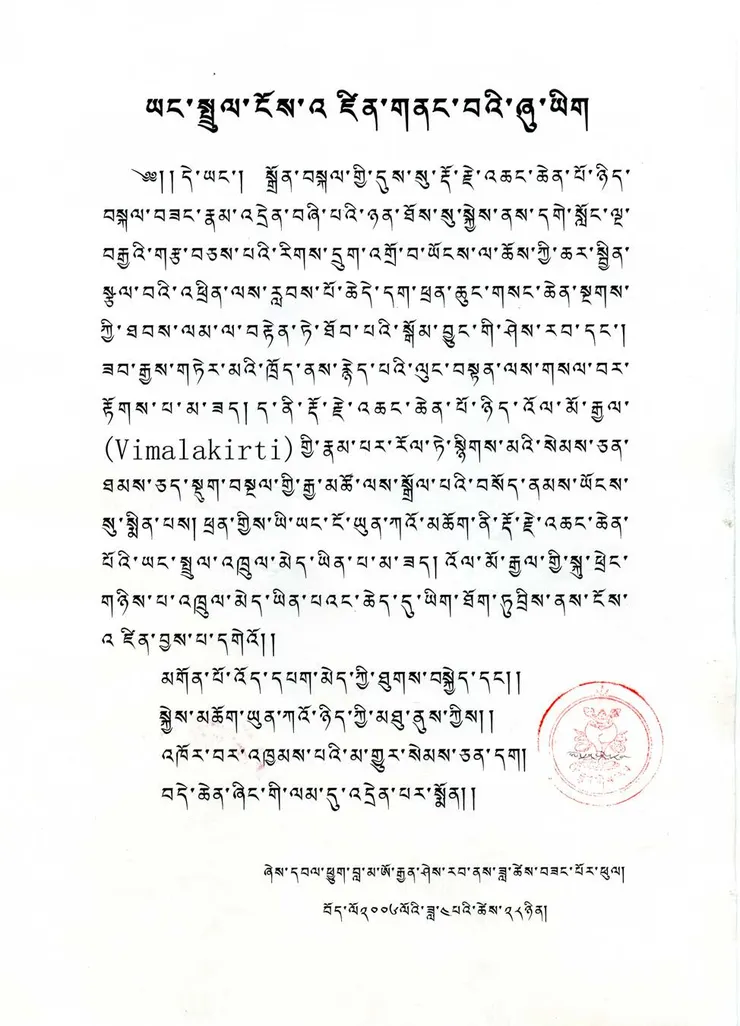 ཡང་སྤྲུལ་ངོས་འ ཛིན་གནང་བའི་ཞུ་ཡིག
༄༅།།དེ་ཡང་། སྒྲོན་བསྐལ་གྱི་དུས་སུ་རྡོ་རྗེ་འཆང་ཆེན་པོ་ཉིད་
བསྐལ་བཟང་རྣམ་འདྲེན་བཞི་པའི་ཉན་ཐོས་སུ་སྐྱེས་ནས་དགེ་སློང་ལྔ་
བརྒྱའི་གཙྩ་བཅས་པའི་རིགས་དྲུག་འགྲོ་བ་ཡོངས་ལ་ཆོས་ཀྱི་ཆར་སྦྱིན་
སྩུལ་བའི་འཕྲིན་ལས་རླབས་པོ་ཆེ་དེ་དག་ཕྲན་ཆུང་གསང་ཆེན་སྔགས་
ཀྱི་ཐབས་ལམ་ལ་བརྟེན་ཏེ་ཐོབ་པའི་སྒོམ་བྱུང་གི་ཤེས་རབ་དང་།
ཟབ་རྒྱས་གཏེར་མའི་ཁྲོད་ནས་རྙེད་པའི་ལུང་བསྟན་ལས་གསལ་བར་
རྟོགས་པ་མ་ཟད། ད་ནི་རྡོ་རྗེ་འཆང་ཆེན་པོ་ཉིད་འོལ་མོ་རྒྱལ་
(Vimalakirti)གྱི་རྣམ་པར་རོལ་ཏེ་སྙིགས་མའི་སེམས་ཅན་
ཐམས་ཅད་སྡུག་བསྔལ་གྱི་རྒྱ་མཚོ་ལས་སྒྲོལ་པའི་བསོད་ནམས་ཡོངས་
སུ་སྨིན་པས། ཕྲན་གྱིས་ཡི་ཡང་ངོ་ཡུན་ཀའོ་མཆོག་ནི་རྡོ་རྗེ་འཆང་ཆེན་
པོའི་ཡང་སྤྲུལ་འཁྲུལ་མེད་ཡིན་པ་མ་ཟད། འོལ་མོ་རྒྱལ་གྱི་སྐུ་ཕྲེང་
གཉིས་པ་འཁྲུལ་མེད་ཡིན་པའང་ཆེད་དུ་ཡིག་ཐོག་ཏུ་བྲིས་ནས་ངོས་
འ ཛིན་བྱས་པ་དགེའོ།།
མགོན་པོ་འོད་དཔག་མེད་ཀྱི་ཐུགས་བསྐྱེད་དང་།།
སྐྱེས་མཆོག་ཡུན་ཀའོ་ཉིད་ཀྱི་མཐུ་ནུས་ཀྱིས།།
འཁོར་བར་འཁྱམས་པའི་མ་གྱུར་སེམས་ཅན་དག།
བདེ་ཆེན་ཞིང་གི་ལམ་དུ་འདྲེན་པར་སྨོན།།
ཞེས་དབལ་ཕྱུག་བླ་མ་ཨོ་རྒྱན་ཤེས་རབ་ནས་ཟླ་ཚེས་བཟང་པོར་ཕུལ།
བོད་ལོ༢༠༠༦ལོའི་ཟླ་༤པའི་ཚེས་༢༨ཉིན།